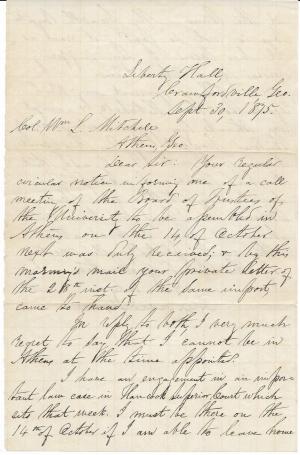 Liberty Hall,
Crawfordville Geo.
Sept 30, 1875.
Col. Wm L. Mitchell
Athens, Geo.
Dear Sir: Your regular
circular notice informing me of a call
meeting of the Board of Trustees of
the University to be assembled in
Athens on the 14 of October
next was duly received; & by this
morning's mail your private letter of
the 28th inst of the same import
came to hand.
In reply to both I very much
regret to say that I cannot be in
Athens at the time appointed.
I have an engagement in an impor-
tant law case in Hancock superior Court which
sits that week. I must be there on the
14th of October if I am able to leave home